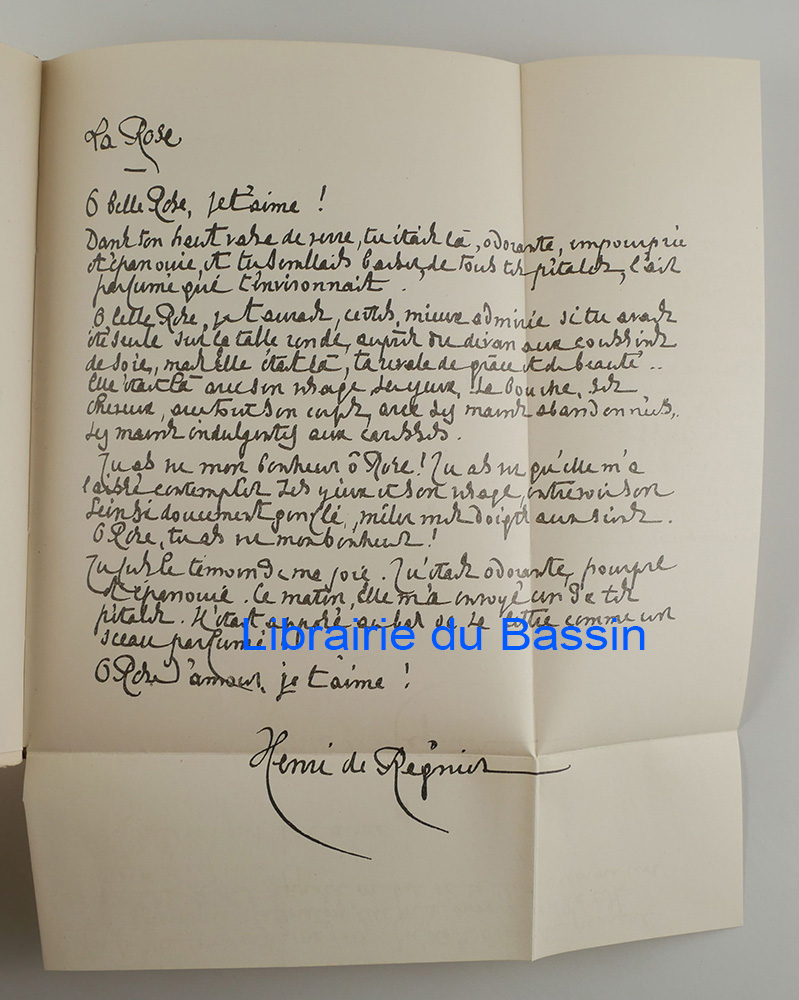 La Rose
O belle Rose, je t'aime !
Dans ton haut vase de verre, tu étais là, odorante, empourprée
et épanouie, et tu semblais baiser, de tous tes pétales, l'air
parfumé qui t'environnait.
O belle Rose, je t'aurais, certes, mieux admirée si tu avais
été seule sur la table ronde, auprès du divan aux coussins
de soie, mais elle était là, ta rivale de grâce et de beauté ..
Elle était là avec son visage, ses yeux, sa bouche, ses
cheveux, avec tout son corps, avec ses mains abandonnées,
ses mains indulgentes aux caresses.
Tu as vu mon bonheur ô Rose ! Tu as vu qu'elle m'a
laissé contempler ses yeux et son visage, entrevoir son
sein si doucement gonflé, mêler mes doigts aux siens.
O Rose, tu as vu mon bonheur !
Tu fus le témoin de ma joie. Tu étais odorante, pourpre
et épanouie. Ce matin, elle m'a envoyé un de tes
pétales. Il était apposé au bas de sa lettre comme un
sceau parfumé
Librairie du Bassin
O Rose d'amour, je t'aime !
Henri de Régnier